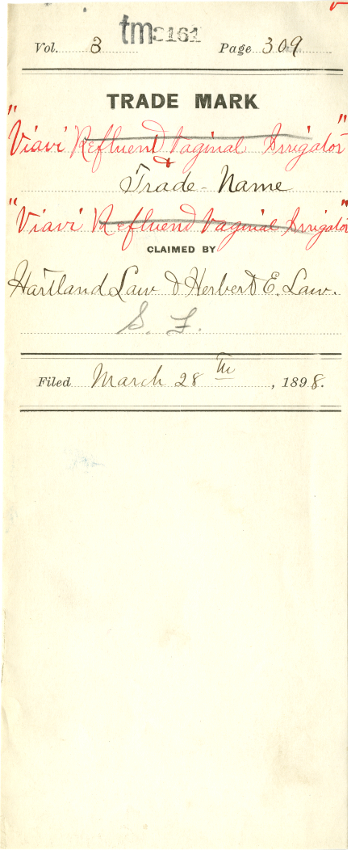 tm 3161
Vol. 3 Page 309
TRADE MARK
"Viavi Refluend Vaginal Irrigator"
&
Trade-Name
"Viavi Refluend Vaginal Irrigator"
CLAIMED BY
Hartland Law & Herbert E. Law.
S. F.
Filed March 28th, 1898.